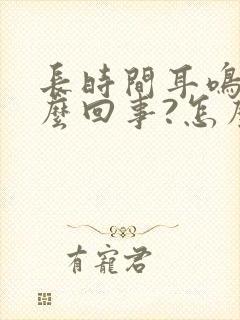 長時間耳鳴
麼回事?怎
有寵君